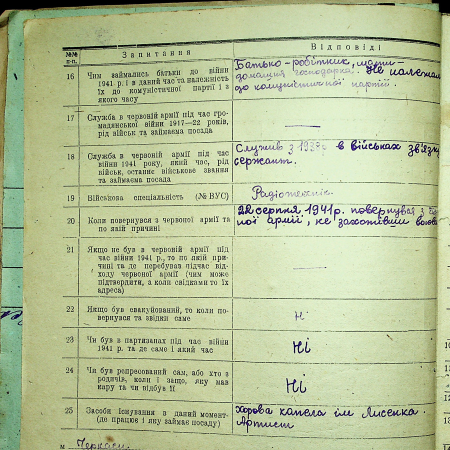 №№ п-п.
Запитання
Відповіді
16
Чим займались батьки до війни
1941 р. і в даний час та належність
їх до комуністичної партії і з
якого часу
Батько-робітник, мати
домашня господарка. Не належали
до комуністичної партії.
17
Служба в червоній армії під час гро-
мадянської війни 1917—22 років,
рід військ та займаєма посада
—
18
Служба в червоній армії під час
війни 1941 року, який час, рід
військ, останнє військове звання
та займаєма посада
Служив з 1939 г в військах зв'язку
сержант.
19
Військова спеціальність (№ ВУС)
Радіотехнік.
20
Коли повернувся з червоної армії та
по якій причині
22 серпня 1941 р. повернувся з
ної армії, не захотівши воюва
21
Якщо не був в червоній армії під
час війни 1941 р., то по якій при-
чині та де перебував підчас від-
ходу червоної армії (чим може
підтвердити, а коли свідками то їх
адреса)
—
22
Якщо був евакуйований, то коли по-
вернувся та звідки саме
Ні
23
Чи був в партизанах під час війни
1941 р. та де само і який час
Ні
24
Чи був ропресований сам, або хто з
родичів, коли і защо, яку мав
кару та чи відбув її
Ні
25
Засоби існування в даний момент
(де працює і яку займає посаду)
Хорова капела ім Лисенка.
Артист
м Черкаси